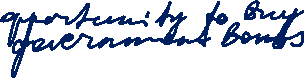 opportunity to buy
government bonds